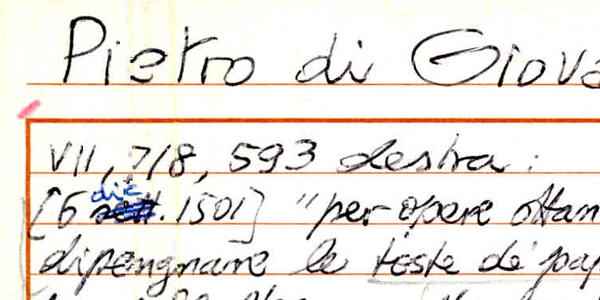 Pietro di Giova
VII, 7/8, 593 destra:
[6 dic. 1501] "per opere ottan
dipengniare le teste de' pap